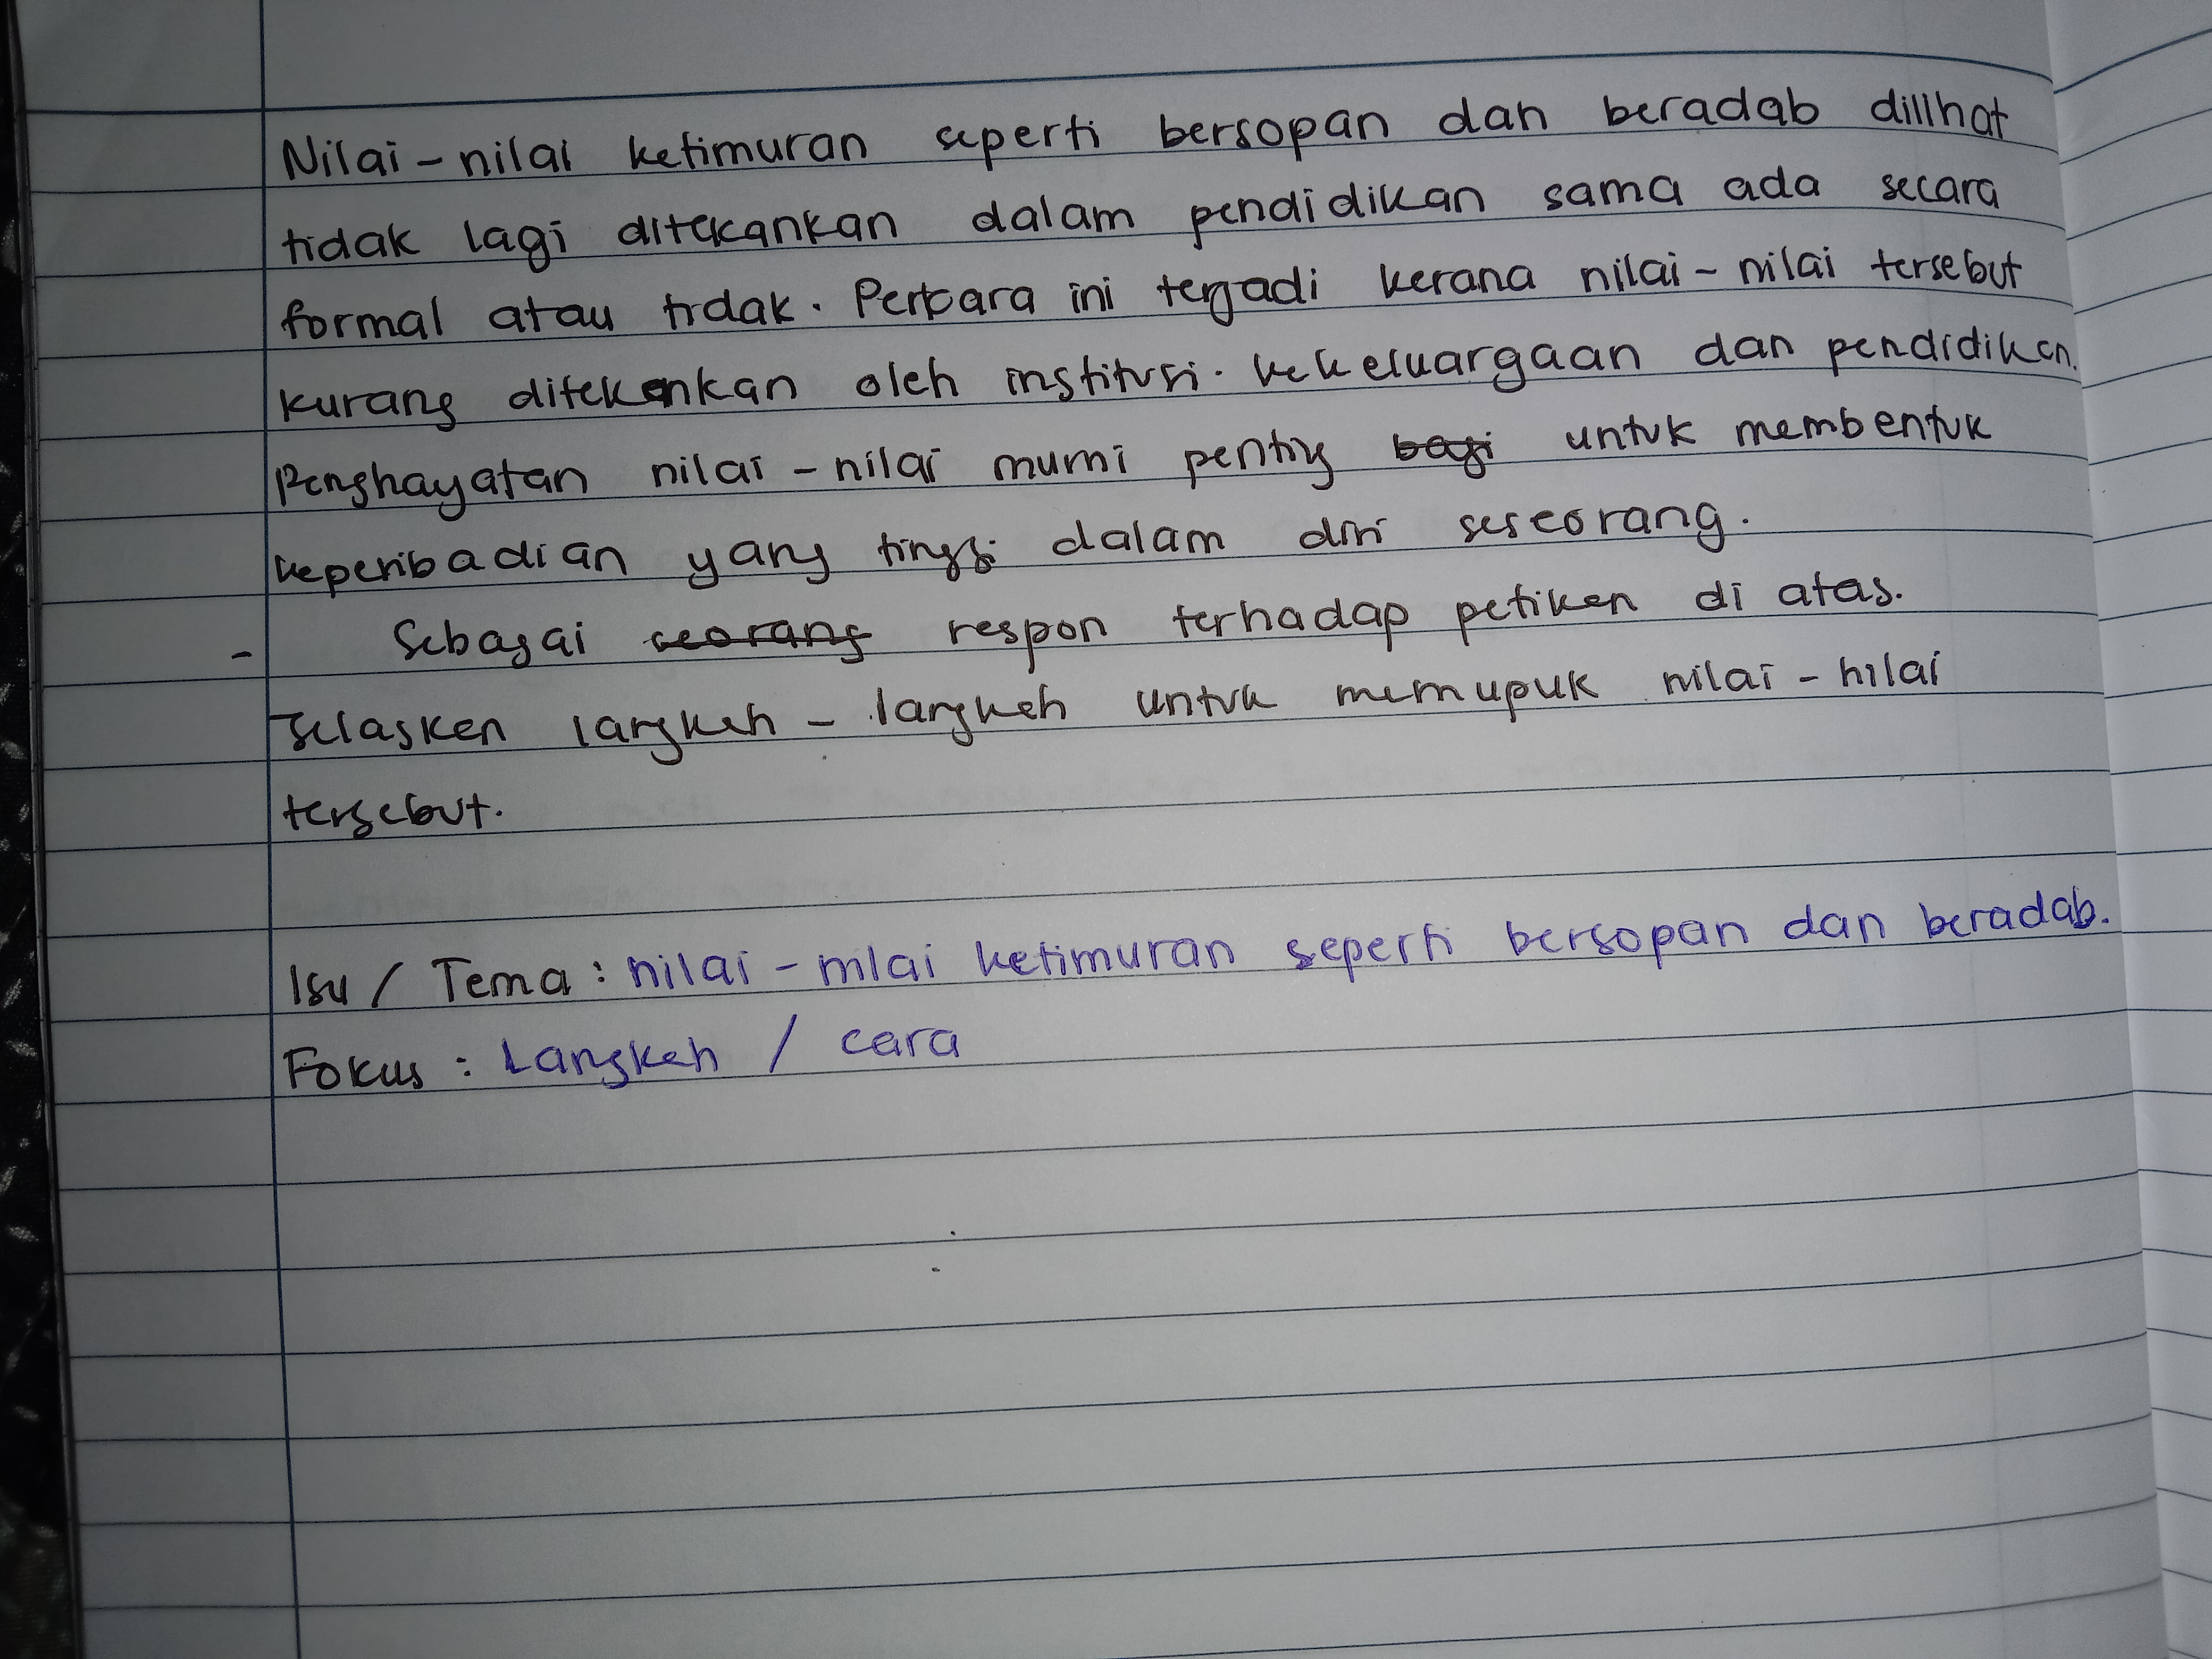 Nilai-nilai ketimuran seperti bersopan dan beradab dilihat
tidak lagi ditekankan dalam pendidikan sama ada secara
formal atau tidak. Perkara ini terjadi kerana nilai-nilai tersebut
kurang ditekankan oleh institusi. kekeluargaan dan pendidikan.
Penghayatan nilai-nilai murni penting bagi untuk membentuk
keperibadian yang tinggi dalam diri seseorang.
- Sebagai seorang respon terhadap petikan di atas.
Jelaskan langkah-langkah untuk memupuk nilai-nilai
tersebut.
Isu / Tema : nilai-nilai ketimuran seperti bersopan dan beradab.
Fokus : Langkah / cara